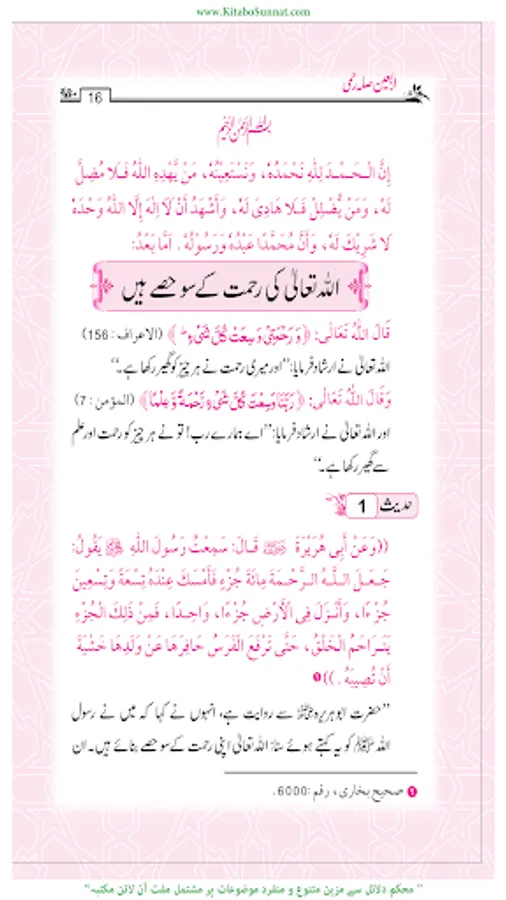 www.KitaboSunnat.com
اربعین صلہ رحمی
16
بسم الله الرحمن الرحيم
إِنَّ الْحَمْدَ لِلَّهِ نَحْمَدُهُ، وَنَسْتَعِيْنُهُ، مَنْ يَّهْدِهِ اللَّهُ فَلَا مُضِلَّ
لَهُ، وَمَنْ يُّضْلِلْ فَلَا هَادِىَ لَهُ، وَأَشْهَدُ أَنْ لَا إِلٰهَ إِلَّا اللَّهُ وَحْدَهُ
لَا شَرِيْكَ لَهُ، وَأَنَّ مُحَمَّدًا عَبْدُهُ وَرَسُوْلُهُ. اَمَّا بَعْدُ:
اللہ تعالیٰ کی رحمت کے سو حصے ہیں
قَالَ اللَّهُ تَعَالَى: ﴿وَرَحْمَتِيْ وَسِعَتْ كُلَّ شَيْءٍ﴾ (الاعراف: 156)
اللہ تعالیٰ نے ارشاد فرمایا: ’’اور میری رحمت نے ہر چیز کو گھیر رکھا ہے۔‘‘
وَقَالَ اللَّهُ تَعَالَى: ﴿رَبَّنَا وَسِعْتَ كُلَّ شَيْءٍ رَّحْمَةً وَّعِلْمًا﴾ (المؤمن: 7)
اور اللہ تعالیٰ نے ارشاد فرمایا: ’’اے ہمارے رب! تو نے ہر چیز کو رحمت اور علم
سے گھیر رکھا ہے۔‘‘
حدیث 1
((وَعَنْ أَبِي هُرَيْرَةَ قَالَ: سَمِعْتُ رَسُولَ اللهِ ﷺ يَقُولُ:
جَعَلَ اللَّهُ الرَّحْمَةَ مِائَةَ جُزْءٍ فَأَمْسَكَ عِنْدَهُ تِسْعَةً وَتِسْعِينَ
جُزْءًا، وَأَنْزَلَ فِى الْأَرْضِ جُزْءًا، وَاحِدًا، فَمِنْ ذَلِكَ الْجُزْءِ
يَتَرَاحَمُ الْخَلْقُ، حَتَّى تَرْفَعَ الْفَرَسُ حَافِرَهَا عَنْ وَلَدِهَا خَشْيَةَ
أَنْ تُصِيبَهُ.))❶
’’حضرت ابو ہریرہ رضی اللہ عنہ سے روایت ہے، انہوں نے کہا کہ میں نے رسول
اللہ ﷺ کو یہ کہتے ہوئے سنا: اللہ تعالیٰ اپنی رحمت کے سو حصے بنائے ہیں۔ ان
❶ صحیح بخاری، رقم: 6000.
"محکم دلائل سے مزین متنوع و منفرد موضوعات پر مشتمل مفت آن لائن مکتبہ"